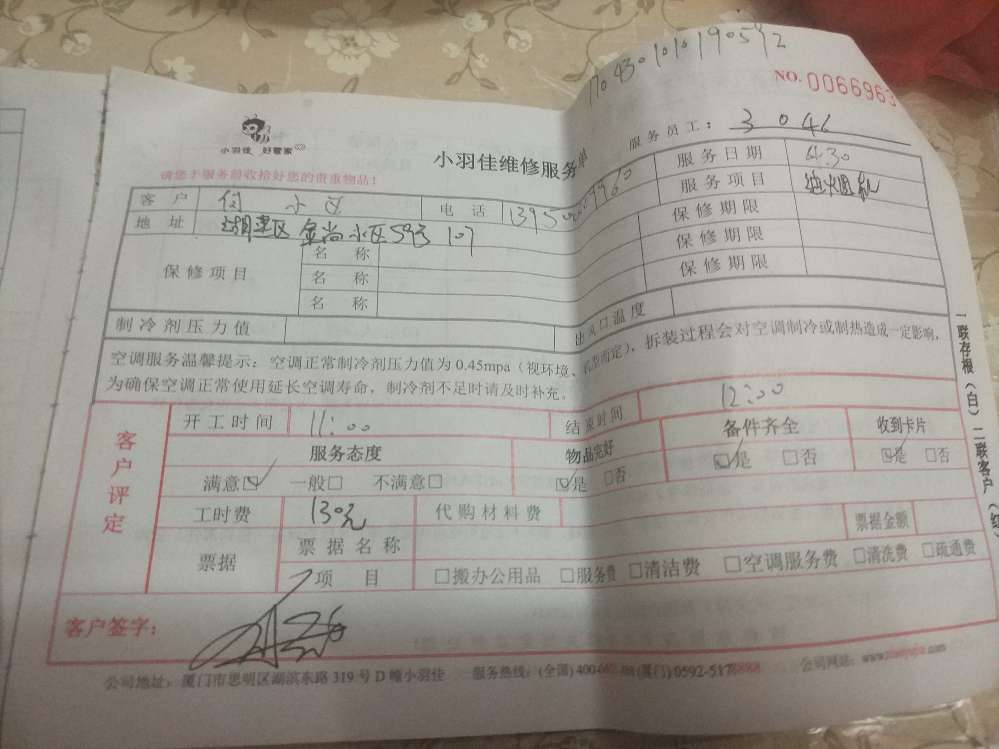 1704301010190592
NO. 0066963
小羽佳 好管家
小羽佳维修服务单
服务员工： 3046
请您于服务前收拾好您的贵重物品！
客 户 电 话 服务日期 4.30
地 址 湖里区金尚小区593 107 服务项目 油烟机
保修项目 名 称 保修期限
名 称 保修期限
名 称 保修期限
制冷剂压力值 出风口温度
空调服务温馨提示：空调正常制冷剂压力值为0.45mpa（视环境、机型而定），拆装过程会对空调制冷或制热造成一定影响，
为确保空调正常使用延长空调寿命，制冷剂不足时请及时补充。
客户评定
开工时间 11：00 结束时间 12：00
服务态度 物品完好 备件齐全 收到卡片
满意☑ 一般□ 不满意□ ☑是 □否 ☑是 □否 ☑是 □否
工时费 130元 代购材料费 票据金额
票据 票据名称
项 目 □搬办公用品 □服务费 □清洁费 □空调服务费 □清洗费 □疏通费
客户签字：
公司地址：厦门市思明区湖滨东路319号D幢小羽佳 服务热线：(全国) (厦门) 公司网站：
一联存根（白） 二联客户